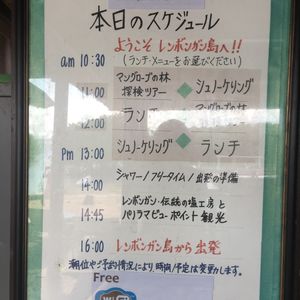 本日のスケジュール
ようこそ レンボンガン島へ!!
am 10:30 (ランチ・メニューをお選びください)
11:00 マングローブの林 探検ツアー ◆ シュノーケリング
12:00 ランチ マングローブの林
Pm 13:00 シュノーケリング ◆ ランチ
14:00 シャワー / フリータイム / 出発の準備
14:45 レンボンガン・伝統の塩工房と
パノラマビューポイント観光
16:00 レンボンガン島から出発
潮位やご予約情況により時間/予定は変動かします。
Free
Wi Fi